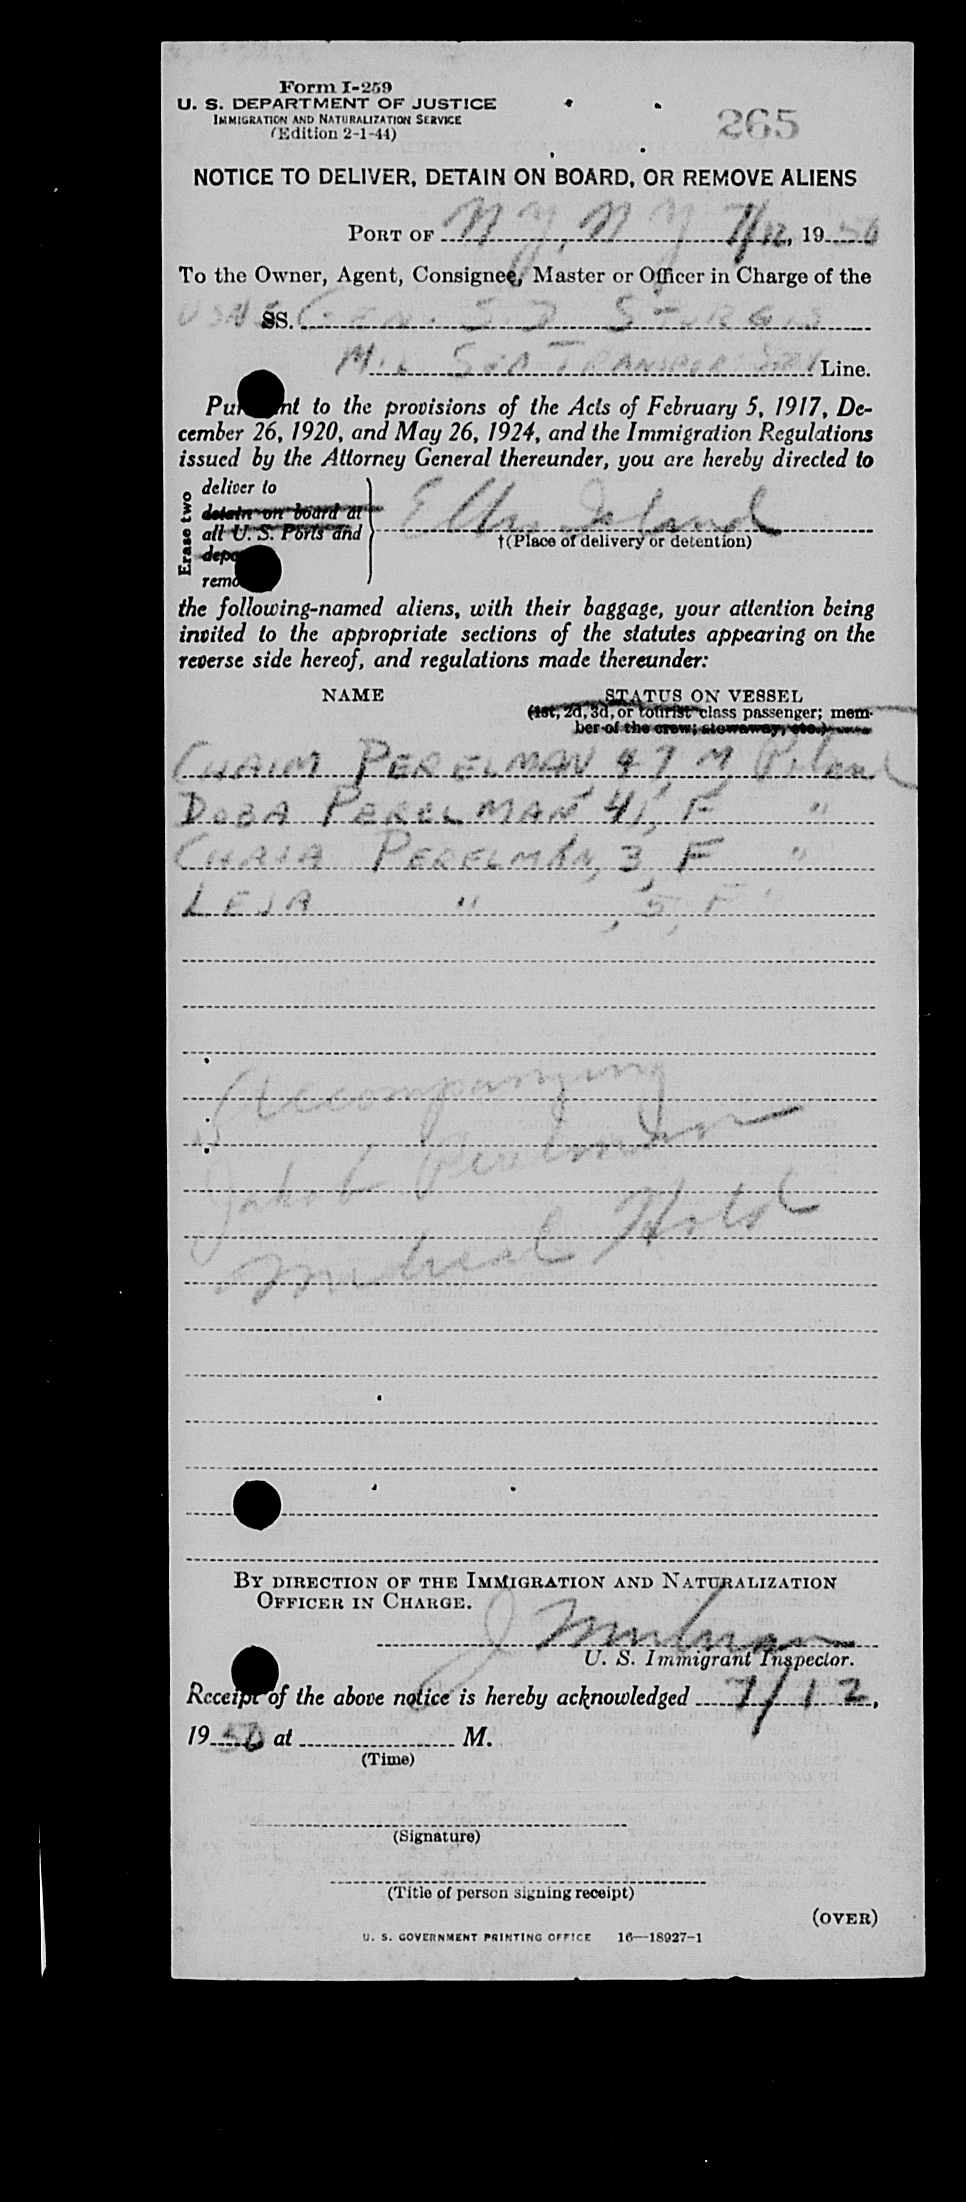 Form I-259
U. S. DEPARTMENT OF JUSTICE
IMMIGRATION AND NATURALIZATION SERVICE
(Edition 2-1-44)
265
NOTICE TO DELIVER, DETAIN ON BOARD, OR REMOVE ALIENS
PORT OF N Y, N Y 7/12, 1950
To the Owner, Agent, Consignee, Master or Officer in Charge of the
SS. GEN. S. D STURGIS
MIL SEA TRANSPOR SRV Line.
Pursuant to the provisions of the Acts of February 5, 1917, De-
cember 26, 1920, and May 26, 1924, and the Immigration Regulations
issued by the Attorney General thereunder, you are hereby directed to
Erase two
deliver to
detain on board at
all U. S. Ports and
Ellis Island
†(Place of delivery or detention)
the following-named aliens, with their baggage, your attention being
invited to the appropriate sections of the statutes appearing on the
reverse side hereof, and regulations made thereunder:
NAME STATUS ON VESSEL
(1st, 2d, 3d, or tourist class passenger; mem-
ber of the crew; stowaway, etc.)
CHAIM PERELMAN 47, M, Poland
DOBA PERELMAN 41, F "
CHAJA PERELMAN, 3, F "
LEJA " , 5, F "
Accompanying
Jakob Perelman
Medical Hold
BY DIRECTION OF THE IMMIGRATION AND NATURALIZATION
OFFICER IN CHARGE.
U. S. Immigrant Inspector.
Receipt of the above notice is hereby acknowledged 7/12,
1950 at M.
(Time)
(Signature)
(Title of person signing receipt)
(OVER)
U. S. GOVERNMENT PRINTING OFFICE 16—18927-1